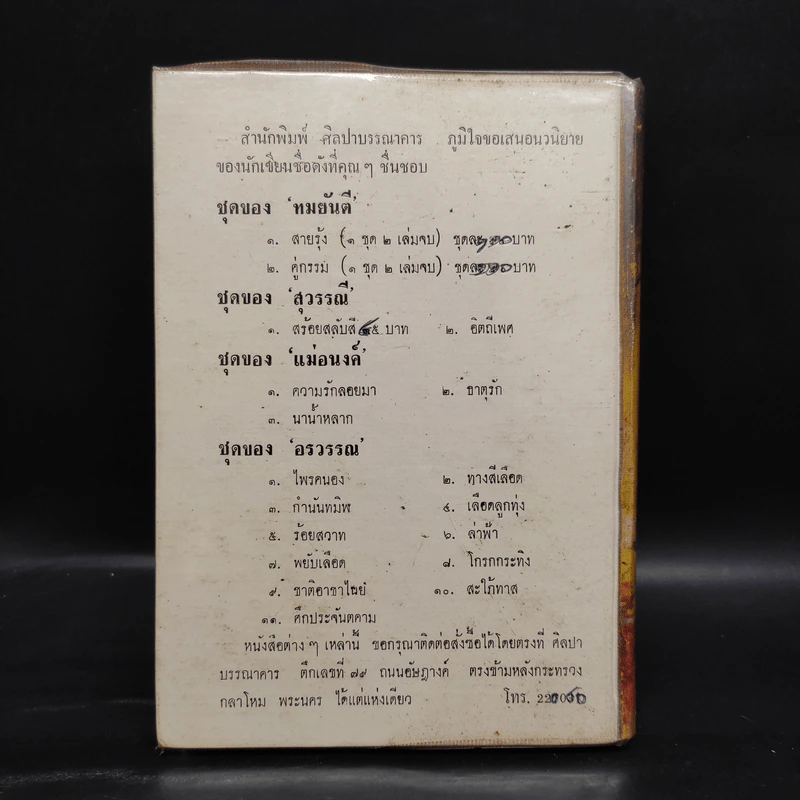 สำนักพิมพ์ ศิลปาบรรณาคาร ภูมิใจขอเสนอนวนิยาย
ของนักเขียนชื่อดังที่คุณ ๆ ชื่นชอบ
ชุดของ 'ทมยันตี'
๑. สายรุ้ง (๑ ชุด ๒ เล่มจบ) ชุดละ บาท
๒. คู่กรรม (๑ ชุด ๒ เล่มจบ) ชุดละ บาท
ชุดของ 'สุวรรณี'
๑. สร้อยสลับสี ๕ บาท ๒. อิตถีเพศ
ชุดของ 'แม่อนงค์'
๑. ความรักลอยมา ๒. ธาตุรัก
๓. นาน้ำหลาก
ชุดของ 'อรวรรณ'
๑. ไพรคนอง ๒. ทางสีเลือด
๓. กำนันทมิฬ ๔. เลือดลูกทุ่ง
๕. ร้อยสวาท ๖. ล่าฟ้า
๗. พยับเลือด ๘. โกรกกระทิง
๙. ชาติอาชาไนย ๑๐. สะใภ้ทาส
๑๑. ศึกประจันตคาม
หนังสือต่าง ๆ เหล่านี้ ขอกรุณาติดต่อสั่งซื้อได้โดยตรงที่ ศิลปา
บรรณาคาร ตึกเลขที่ ๗๙ ถนนอัษฎางค์ ตรงข้ามหลังกระทรวง
กลาโหม พระนคร ได้แต่แห่งเดียว โทร.